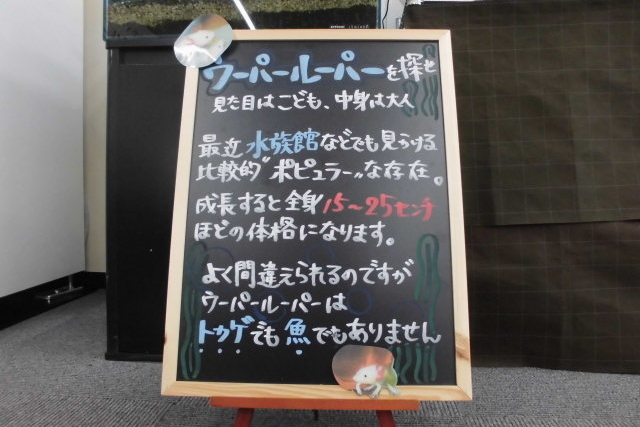 ウーパールーパーを探せ
見た目はこども、中身は大人
最近水族館などでも見かける
比較的"ポピュラー"な存在。
成長すると全身15〜25センチ
ほどの体格になります。
よく間違えられるのですが
ウーパールーパーは
トカゲでも魚でもありません